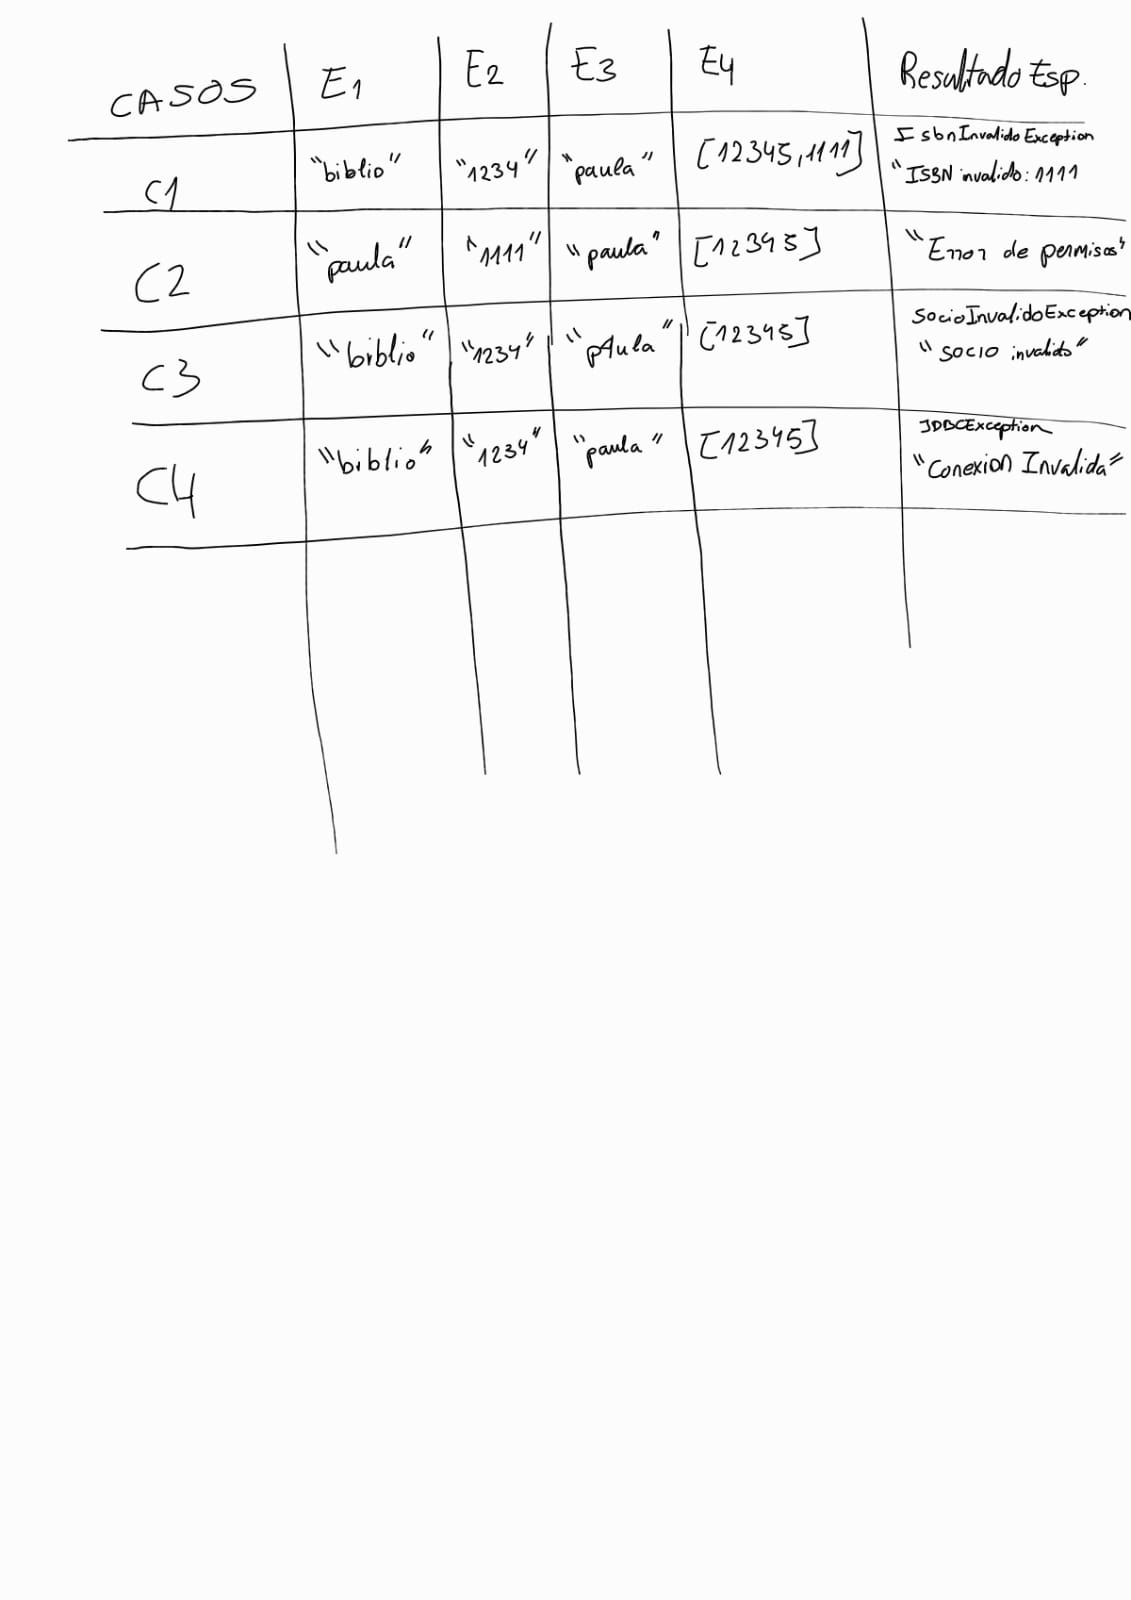 CASOS E1 E2 E3 E4 Resultado Esp.
C1 "biblio" "1234" "paula" [12345,1111] IsbnInvalidoException
"ISBN invalido: 1111
C2 "paula" "1111" "paula" [12345] "Error de permisos"
C3 "biblio" "1234" "pAula" [12345] SocioInvalidoException
"socio invalido"
C4 "biblio" "1234" "paula" [12345] JDBCException
"Conexion Invalida"